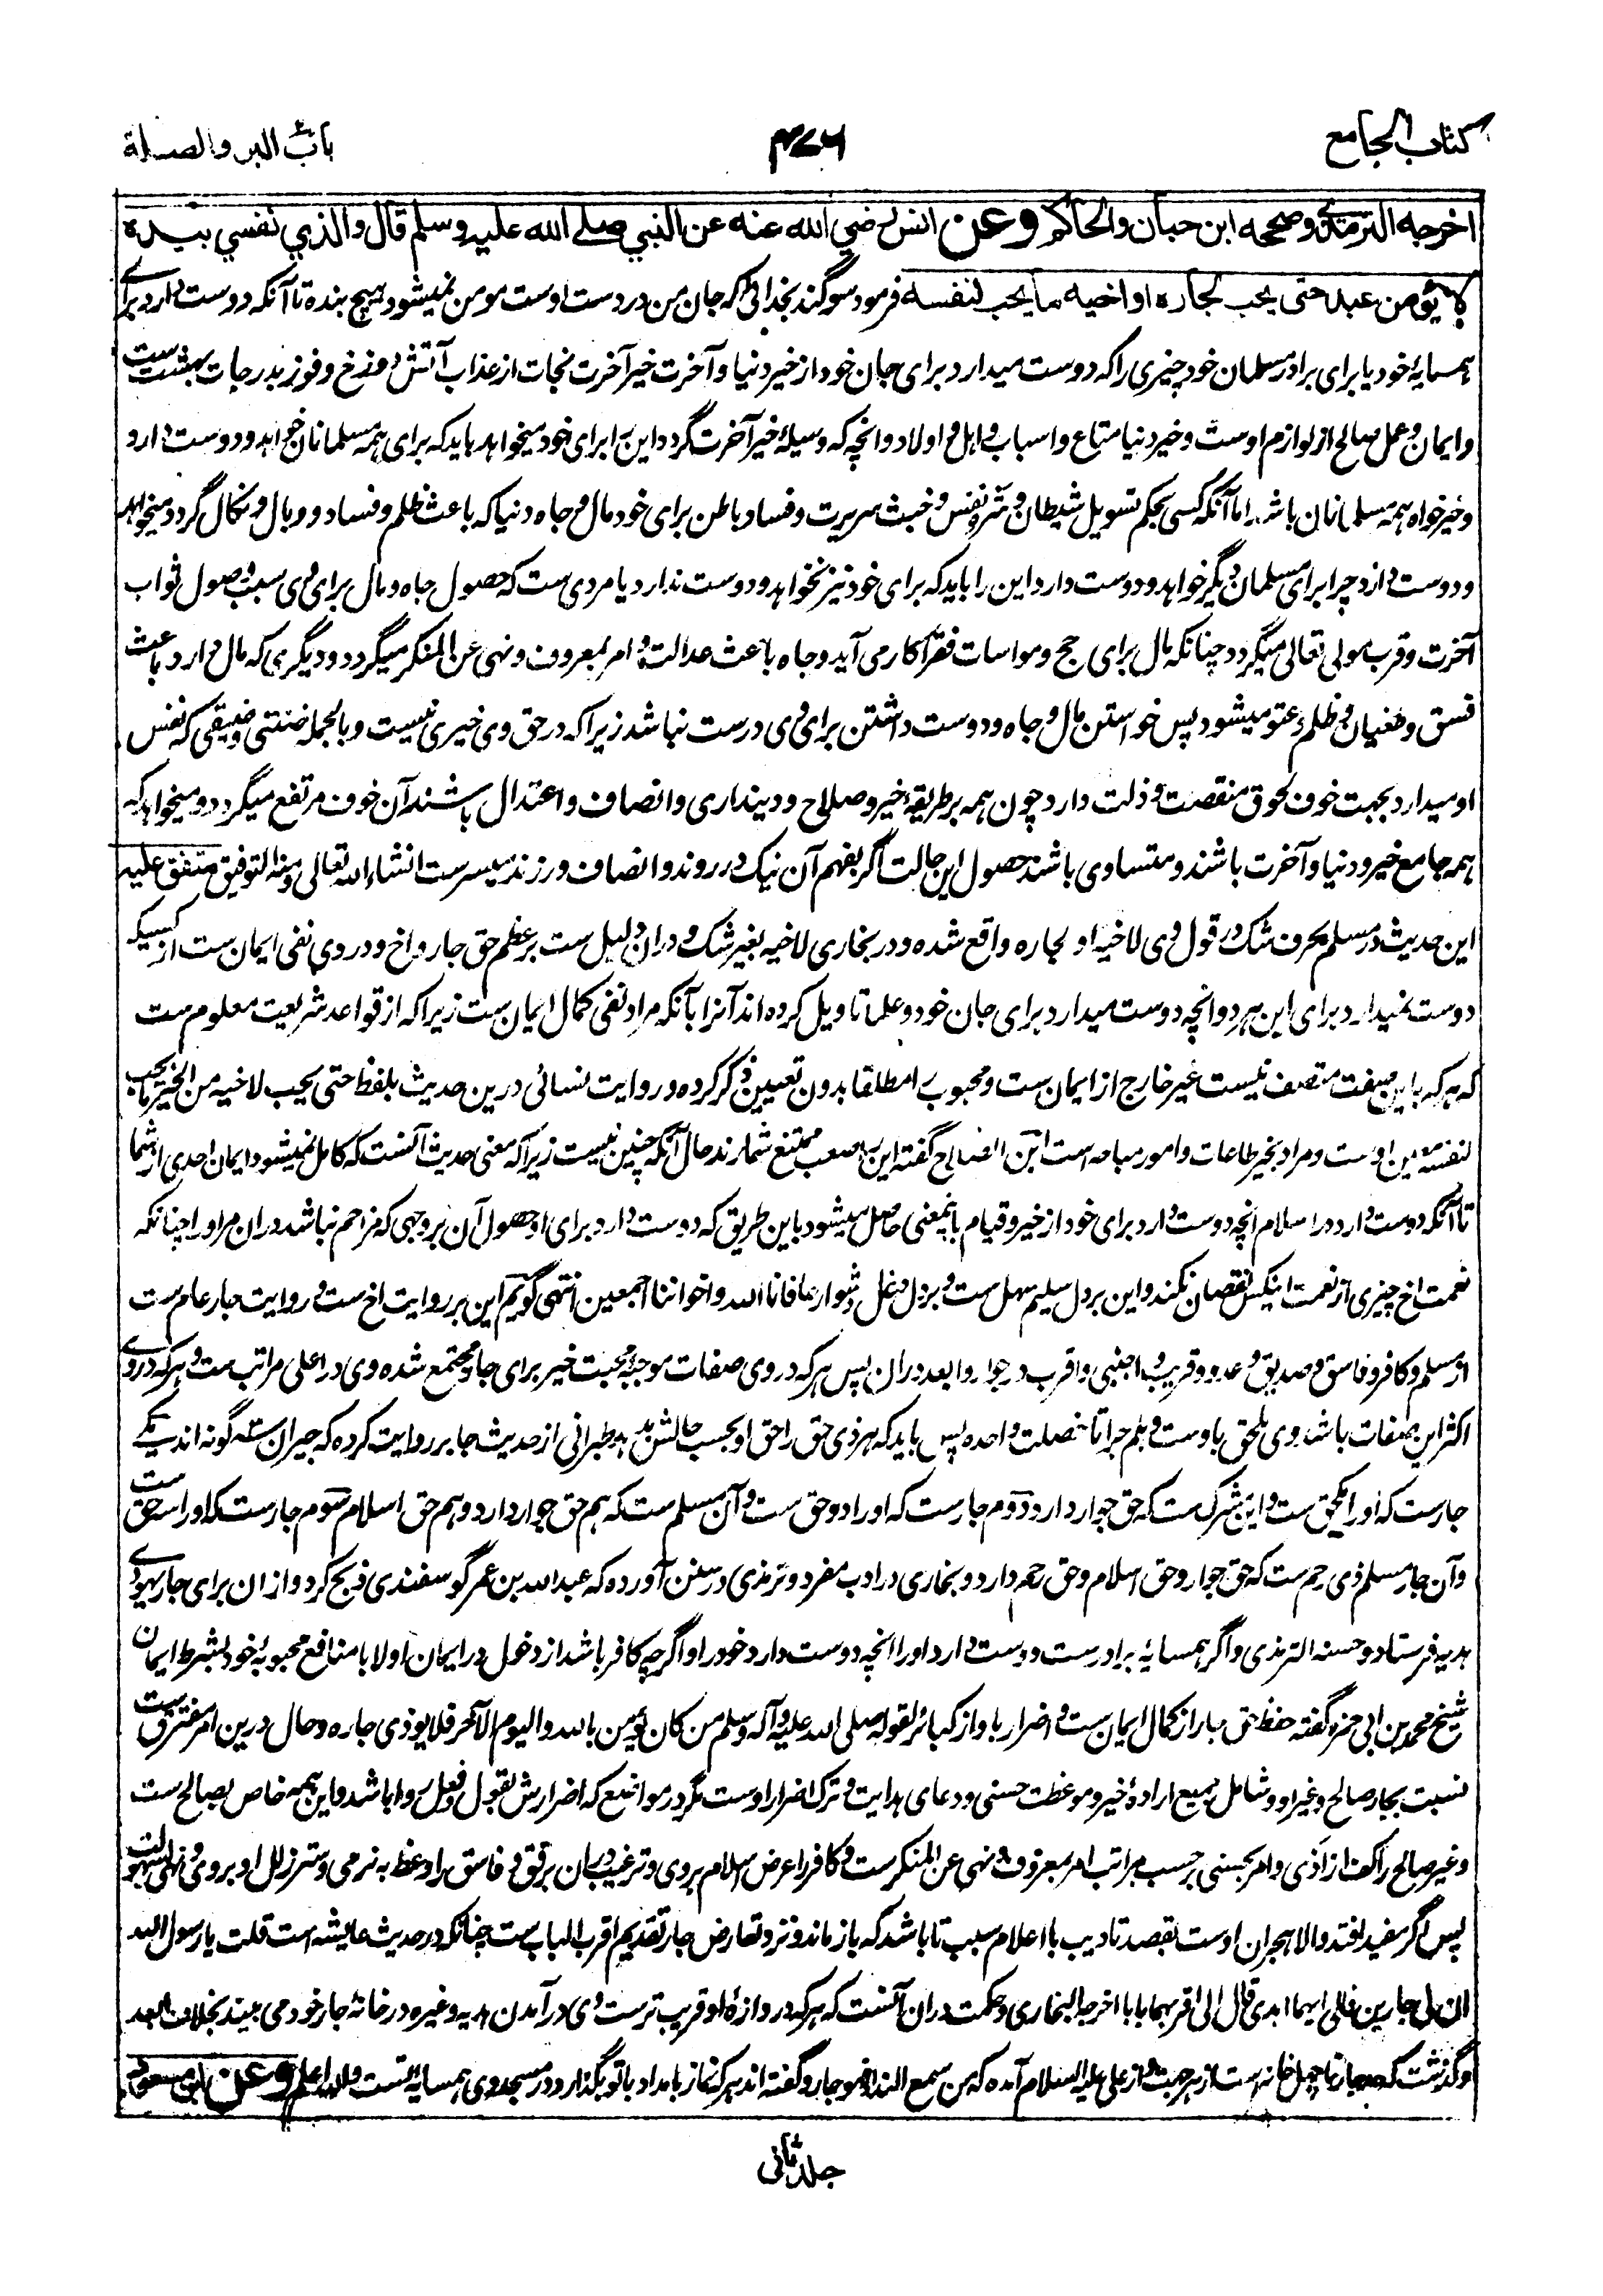 كتاب الجامع
۴۷۶
باب البر والصلة
اخرجه الترمذي وصححه ابن حبان والحاكم وعن انس رضي الله عنه عن النبي صلے الله عليه وسلم قال والذي نفسي بيده
لا يؤمن عبد حتى يحب لجاره او اخيه ما يحب لنفسه فرمود سوگند بخدائی که جان من در دست اوست مومن نمیشود هیچ بنده تا آنکه دوست دارد برای
همسایۀ خود یا برای برادر مسلمان خود چیزی را که دوست میدارد برای جان خود از خیر دنیا و آخرت خیر آخرت نجات از عذاب آتش دوزخ و فوز بدرجات بهشت ست
و ایمان و عمل صالح از لوازم اوست و خیر دنیا متاع و اسباب و اهل و اولاد و انچه که وسیلۀ خیر آخرت گردد این را برای خود میخواهد باید که برای همه مسلمانان خواهد و دوست دارد
و خیر خواه همه مسلمانان باشد اما آنکه کسی بحکم تسویل شیطان و شره نفس و خبث سریرت و فساد باطن برای خود مال و جاه دنیا که باعث ظلم و فساد و وبال و نکال گردد میخواهد
و دوست دارد چرا برای مسلمان دیگر خواهد و دوست دارد این را باید که برای خود نیز نخواهد و دوست ندارد یا مردی ست که حصول جاه و مال برای وی سبب وصول ثواب
آخرت و قرب مولی تعالی میگردد چنانکه مال برای حج و مواسات فقرا بکار می آید و جاه باعث عدالت و امر بمعروف و نهی عن المنکر میگردد و دیگری که مال دارد باعث
فسق و طغیان و ظلم و عتو میشود پس خواستن مال و جاه و دوست داشتن برای وی درست نباشد زیرا که در حق وی خیری نیست و بالجمله ضنتی و ضیقی که نفس
او میدارد بجهت خوف لحوق منقصت و ذلت دارد چون همه بر طریقۀ خیر و صلاح و دینداری و انصاف و اعتدال باشند آن خوف مرتفع میگردد و میخواهد که
همه جامع خیرود دنیا و آخرت باشند و متساوی باشند حصول این حالت اگر بفهم آن نیک در روند و انصاف ورزند میسرست انشاء الله تعالی و منه التوفیق متفق علیه
این حدیث در مسلم بحرف شک در قول وی لاخیه او لجاره واقع شده و در بخاری لاخیه بغیر شک و دران دلیل ست بر عظم حق جار و اخ و در وی نفی ایمان ست از کسیکه
دوست نمیدارد برای این هر دو انچه دوست میدارد برای جان خود و علما تاویل کرده اند آنرا بآنکه مراد نفی کمال ایمان ست زیرا که از قواعد شریعت معلوم ست
که هر که باین صفت متصف نیست غیر خارج از ایمان ست و محبوب را مطلقا بدون تعیین ذکر کرده و در روایت نسائی درین حدیث بلفظ حتی یحب لاخیه من الخیر ما یحب
لنفسه معین اوست و مراد بخیر طاعات و امور مباحه است ابن الصلاح گفته این را صعب ممتنع شمارند حال آنکه چنین نیست زیرا که معنی حدیث آنست که کامل نمیشود ایمان احدی از شما
تا آنکه دوست دارد در اسلام انچه دوست دارد برای خود از خیر و قیام باینمعنی حاصل میشود باین طریق که دوست دارد برای او حصول آن بر وجهی که مزاحم نباشد دران مر او را چنانکه
نعمت اخ چیزی از نعمت اینکس نقصان نکند و این بر دل سلیم سهل ست و بر دل دغل دشوار عافانا الله و اخواننا اجمعین انتهی گویم این بر روایت اخ ست و روایت جار عام ست
از مسلم و کافر و فاسق و صدیق و عدو و قریب و اجنبی و اقرب در جوار و ابعد دران پس هر که در وی صفات موجبۀ محبت خیر برای جار مجتمع شده وی در اعلی مراتب ست و هر که در وی
اکثر این صفات باشد وی ملحق باوست و هلم جرا تا خصلت واحده پس باید که هر ذی حق را حق او بحسب حالش بدهد طبرانی از حدیث جابر روایت کرده که جیران سه گونه اند یکی
جارست که او را یکحق ست و این مشرک ست که حق جوار دارد دوم جارست که او را دو حق ست و آن مسلم ست که هم حق جوار دارد و هم حق اسلام سوم جارست که او را سه حق ست
و آن جار مسلم ذی رحم ست که حق جوار و حق اسلام و حق رحم دارد و بخاری در ادب مفرد و ترمذی در سنن آورده که عبد الله بن عمر گوسفندی ذبح کرد و از ان برای جار یهودی
هدیه فرستاد و حسنه الترمذی و اگر همسایه برادرست و دوست دارد او را انچه دوست دارد خود را و اگرچه کافر باشد از دخول در ایمان اولا با منافع محبوبۀ خود بشرط ایمان
شیخ محمد بن ابی جمره گفته حفظ حق جار از کمال ایمان ست و اضرار باو از کبائر لقوله صلی الله علیه وآله وسلم من کان یؤمن بالله والیوم الآخر فلا یوذی جاره و حال درین امر مفترق ست
نسبت بجار صالح و غیر او و شامل جمیع ارادۀ خیر و موعظت حسنی و دعای هدایت و ترک اضرار اوست مگر در مواضع که اضرارش بقول و فعل روا باشد و این همه خاص بصالح ست
و غیر صالح را کف از اذی و امر بحسنی بر حسب مراتب امر بمعروف و نهی عن المنکرست و کافر را عرض اسلام بر وی و ترغیب دران برفق و فاسق را وعظ به نرمی و ستر زلل او بر وی و نهی بسهولت
پس اگر مفید افتد والا هجران اوست بقصد تادیب با اعلام سبب تا باشد که باز ماند و نزد تعارض جار تقدیم اقرب الی الباب ست چنانکه در حدیث عایشه است قلت یا رسول الله
ان لی جارین فالی ایهما اهدی قال الی اقربهما بابا اخرجه البخاری و حکمت دران آنست که هر که دروازۀ او قریب ترست وی در آمدن هدیه و غیره در خانۀ جار خود می بیند بخلاف بعد
و گذشت که حد جار تا چهل خانه است از هر جهت و از علی علیه السلام آمده که من سمع النداء فهو جار و گفته اند هر که نماز بامداد با تو بگذارد در مسجد وی همسایۀ تست والله اعلم وعن ابن مسعود
جلد ثانی